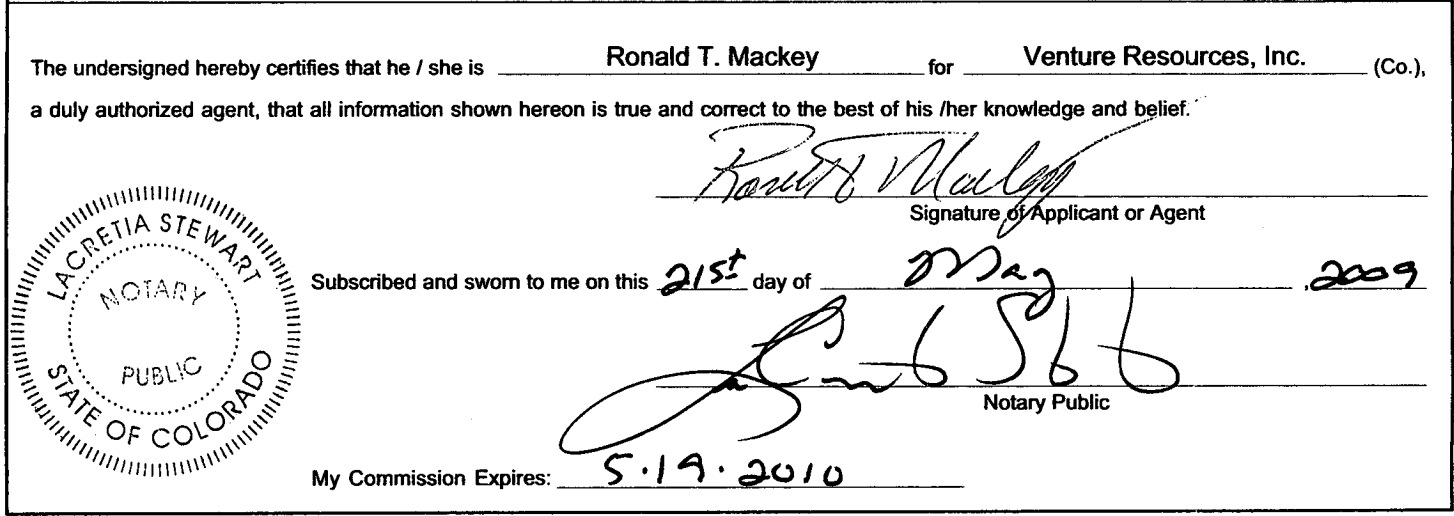 The undersigned hereby certifies that he / she is Ronald T. Mackey for Venture Resources, Inc. (Co.),
a duly authorized agent, that all information shown hereon is true and correct to the best of his /her knowledge and belief.
Signature of Applicant or Agent
LACRETIA STEWART
NOTARY
PUBLIC
STATE OF COLORADO
Subscribed and sworn to me on this 21st day of May, 2009
Notary Public
My Commission Expires: 5.19.2010